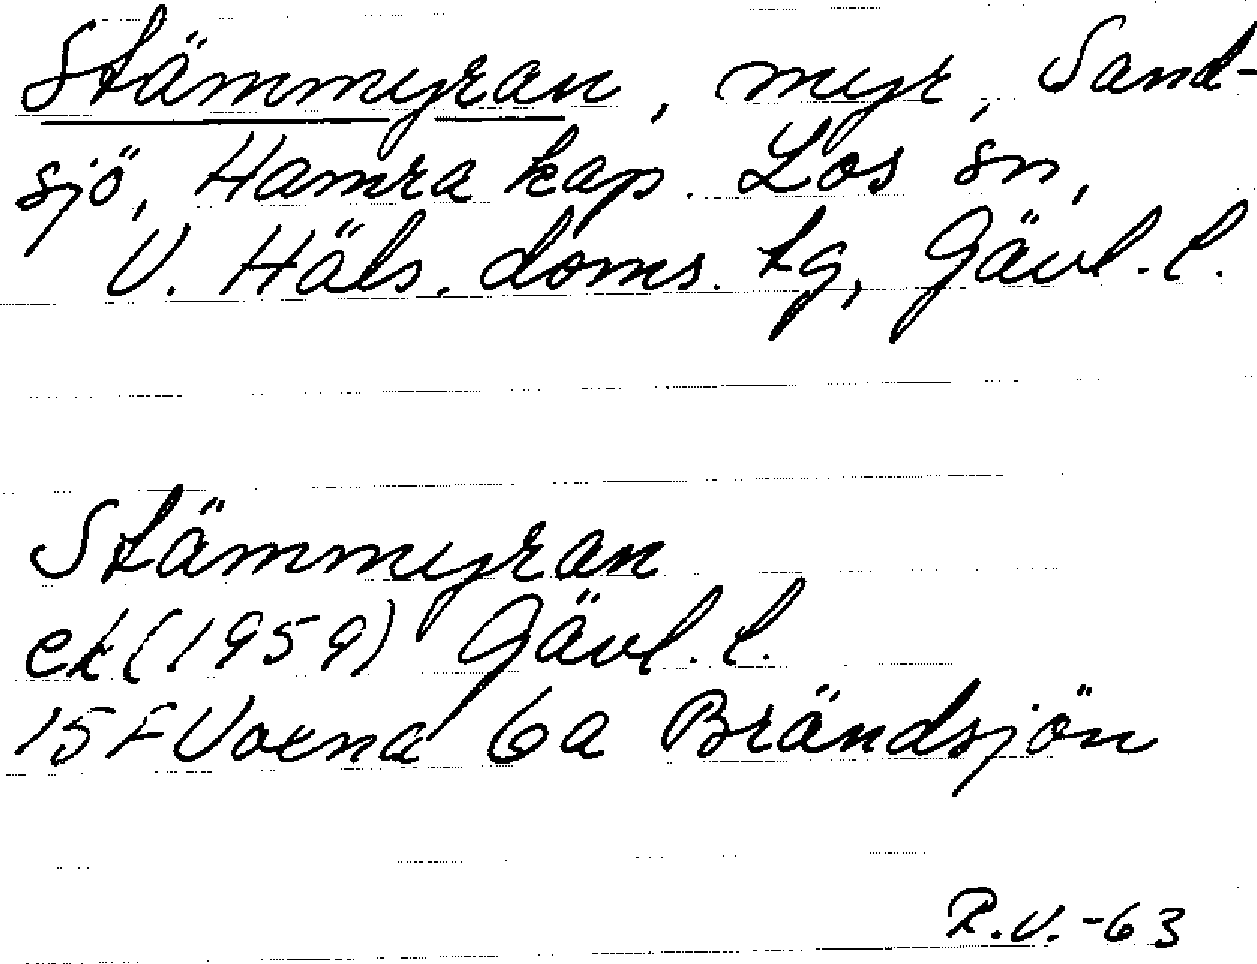 Stämmyran, myr, Sand-
sjö, Hamra kap. Los sn,
V. Häls. doms. tg, Gävl. l.
Stämmyran
ek (1959) Gävl. l.
15 F Voxna 6a Brändsjön
R.V.-63